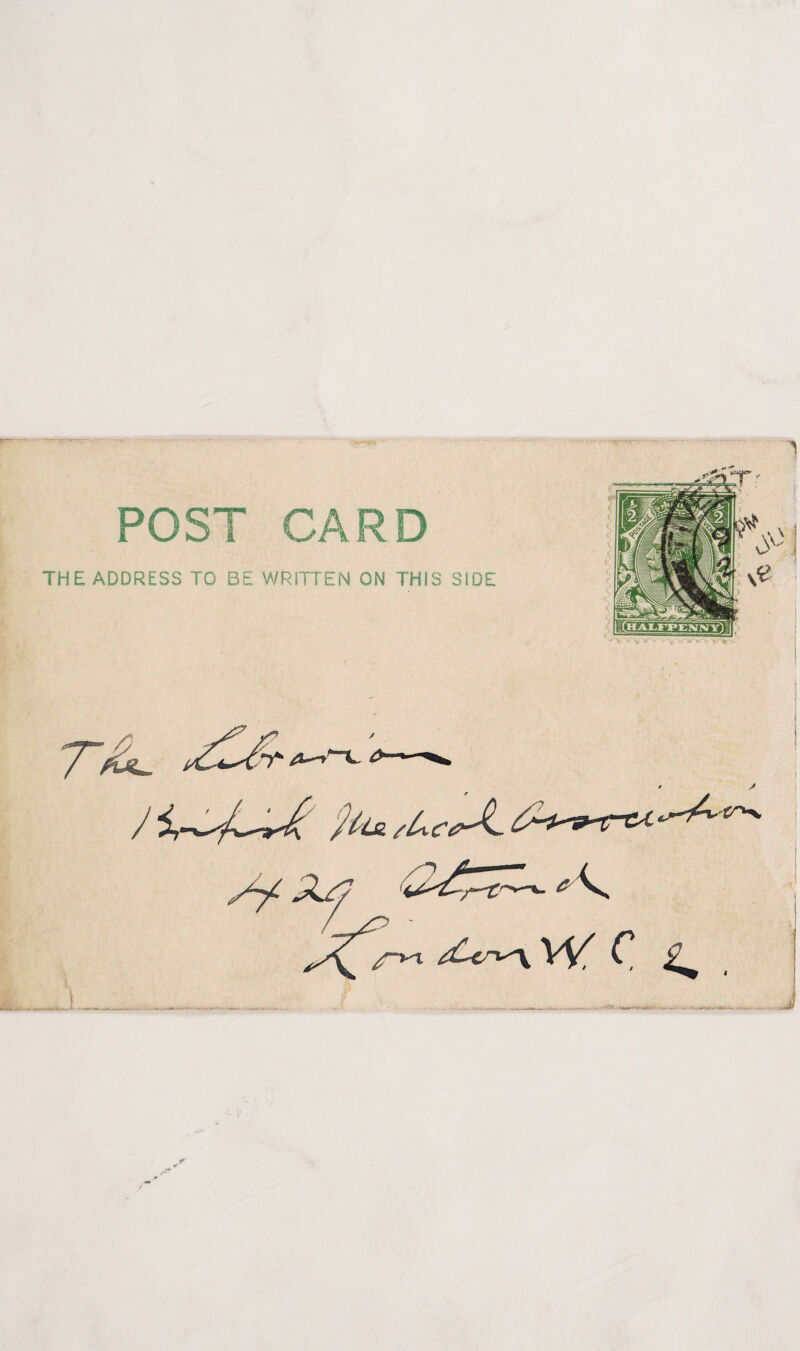 POST CARD
THE ADDRESS TO BE WRITTEN ON THIS SIDE
HALFPENNY
9 PM
2 JU
18
The Librarian
British Medical Association
429 Strand
London W.C. 2.